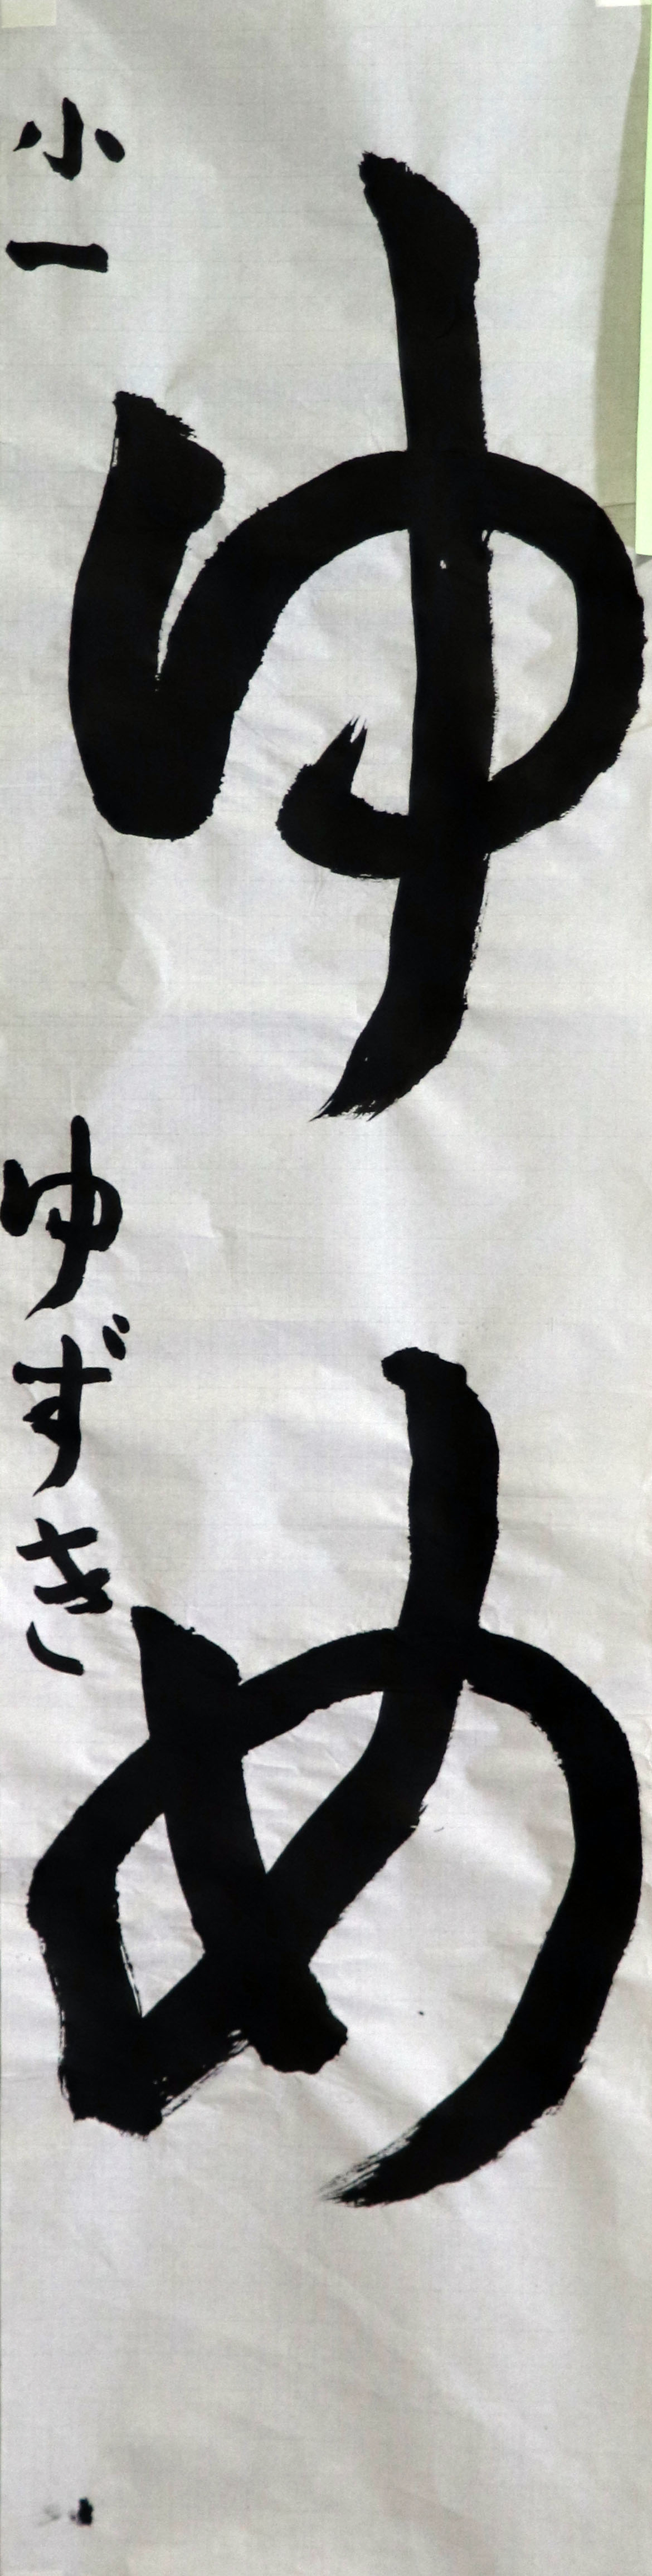 ゆめ
小一 ゆずき